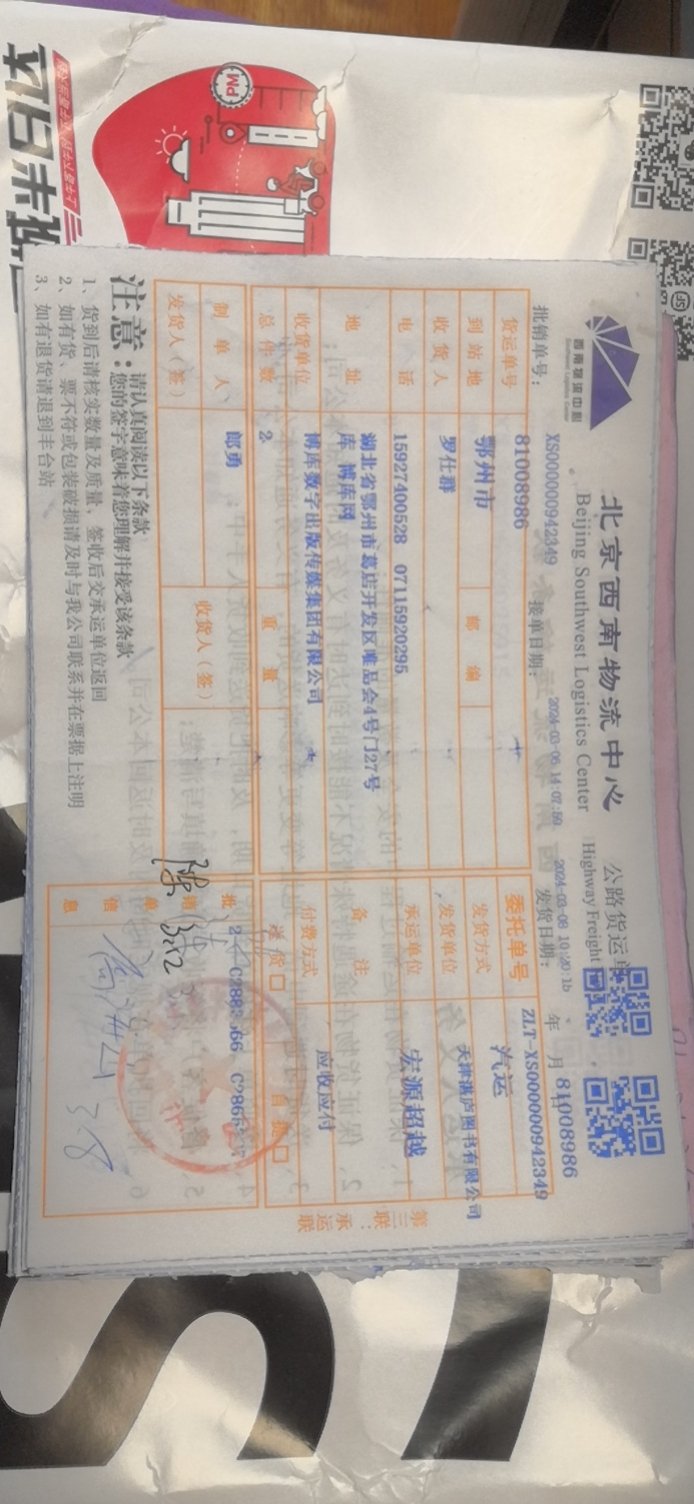 西南物流中心
Southwest Logistics Center
北京西南物流中心
Beijing Southwest Logistics Center
公路货运
Highway Freight
批销单号：
XS000000942349
接单日期：
2024-03-06 14:07:59
发货日期：
2024-03-08 10:20:1
年 月
81008986
货运单号
81008986
委托单号
ZLT-XS000000942349
到站地
鄂州市
邮编
发货方式
汽运
收货人
罗仕群
发货单位
天津湛庐图书有限公司
电话
15927400528 07115920295
承运单位
宏源超越
地址
湖北省鄂州市葛店开发区唯品会4号门27号
库 博库网
备注
收货单位
博库数字出版传媒集团有限公司
付费方式
应收应付
总件数
2
重量
送货□
自提□
制单人
郎勇
收货人（签）
发货人（签）
批销单信息
第三联：承运联
注意：
请认真阅读以下条款
您的签字意味着您理解并接受该条款
1、货到后请核实数量及质量，签收后交承运单位返回
2、如有货、票不符或包装破损请及时与我公司联系并在票据上注明
3、如有退货请退到丰台站
PM